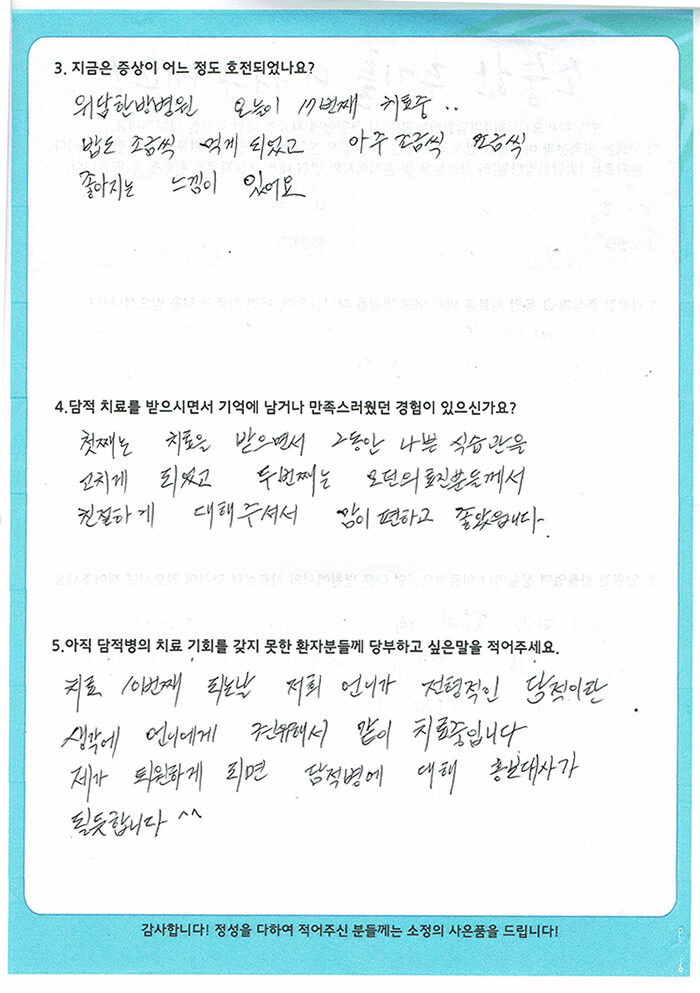 3. 지금은 증상이 어느 정도 호전되었나요?
위담한방병원 오늘이 17번째 치료중 ..
밥도 조금씩 먹게 되었고 아주 조금씩 조금씩
좋아지는 느낌이 있어요
4.담적 치료를 받으시면서 기억에 남거나 만족스러웠던 경험이 있으신가요?
첫째는 치료을 받으면서 그동안 나쁜 식습관을
고치게 되었고 두번째는 모던의료진분들께서
친절하게 대해주셔서 맘이 편하고 좋았읍니다.
5.아직 담적병의 치료 기회를 갖지 못한 환자분들께 당부하고 싶은말을 적어주세요.
치료 10번째 되는날 저희 언니가 전형적인 담적이란
생각에 언니에게 권유해서 같이 치료중입니다
제가 퇴원하게 되면 담적병에 대해 홍보대사가
될듯합니다 ^^
감사합니다! 정성을 다하여 적어주신 분들께는 소정의 사은품을 드립니다!